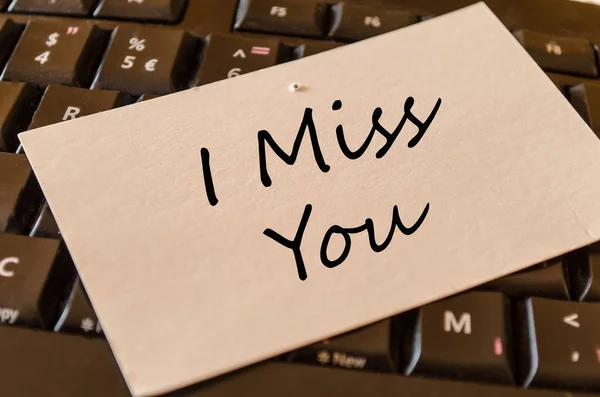 F5
F6
F8
$ "
4
%
5 €
^ =
6
R
I Miss
You
C
M
<
*New